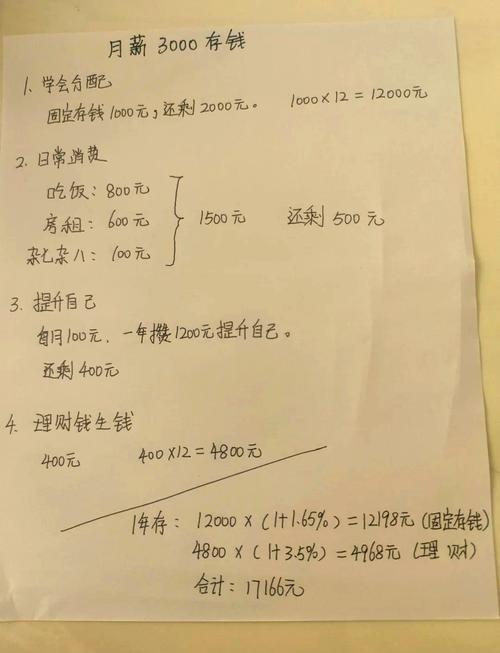 月薪 3000 存钱
1、学会分配
固定存钱1000元，还剩2000元。 1000×12=12000元
2、日常消费
吃饭：800元
房租：600元 1500元 还剩500元
杂七杂八：100元
3、提升自己
每月100元，一年攒1200元提升自己。
还剩400元
4、理财钱生钱
400元 400×12=4800元
1年存：12000×(1+1.65%)=12198元(固定存钱)
4800×(1+3.5%)=4968元(理财)
合计：17166元